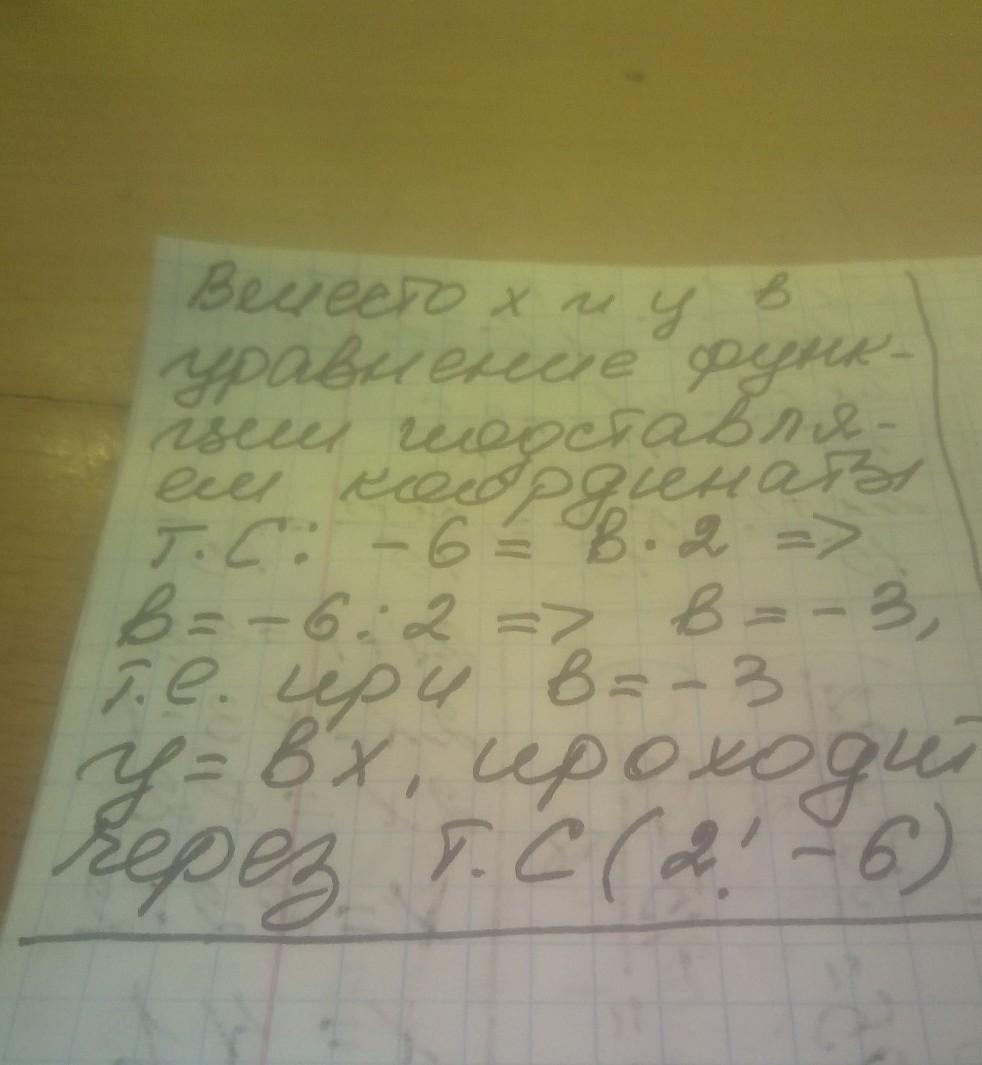 Вместо х и у в
уравнение функ-
ции подставля-
ем координаты
т. С: -6 = в·2 =>
в = -6:2 => в = -3,
т.е. при в = -3
у = вх, проходит
через т. С (2; -6)